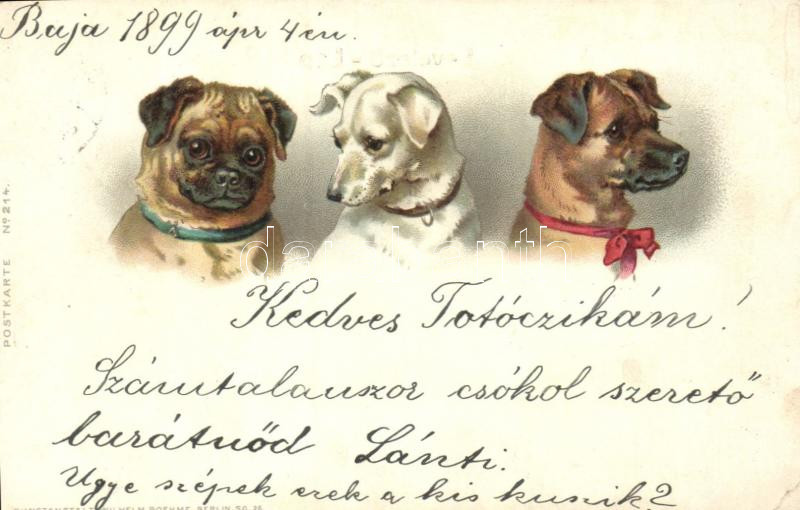 Baja 1899 ápr 4én.
POSTKARTE Nº 214.
darabanth
Kedves Totóczikám!
Számtalanszor csókol szerető
barátnőd Lánti.
Ugye szépek ezek a kis kuszik?
KUNSTANSTALT WILHELM BOEHME, BERLIN S.O. 26